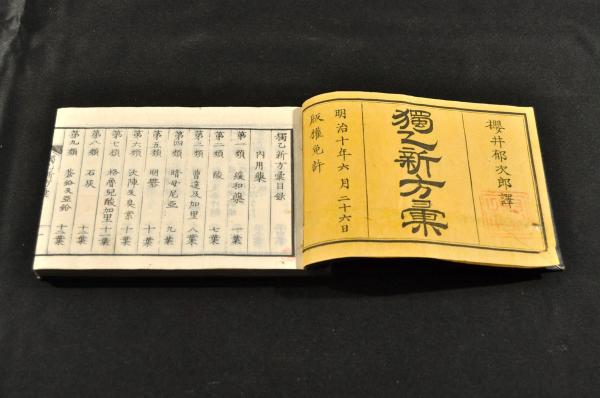 櫻井郁次郎譯
獨乙新方彙
明治十年六月二十六日
版權免許
獨乙新方彙目録
内用藥
第一類 緩和藥 一葉
第二類 酸 七葉
第三類 曹達及加里 八葉
第四類 暗母尼亞 九葉
第五類 明礬 十葉
第六類 沃陳及臭素 十葉
第七類 格魯兒酸加里 十一葉
第八類 石灰 十二葉
第九類 蒼鉛及亞鉛 十二葉